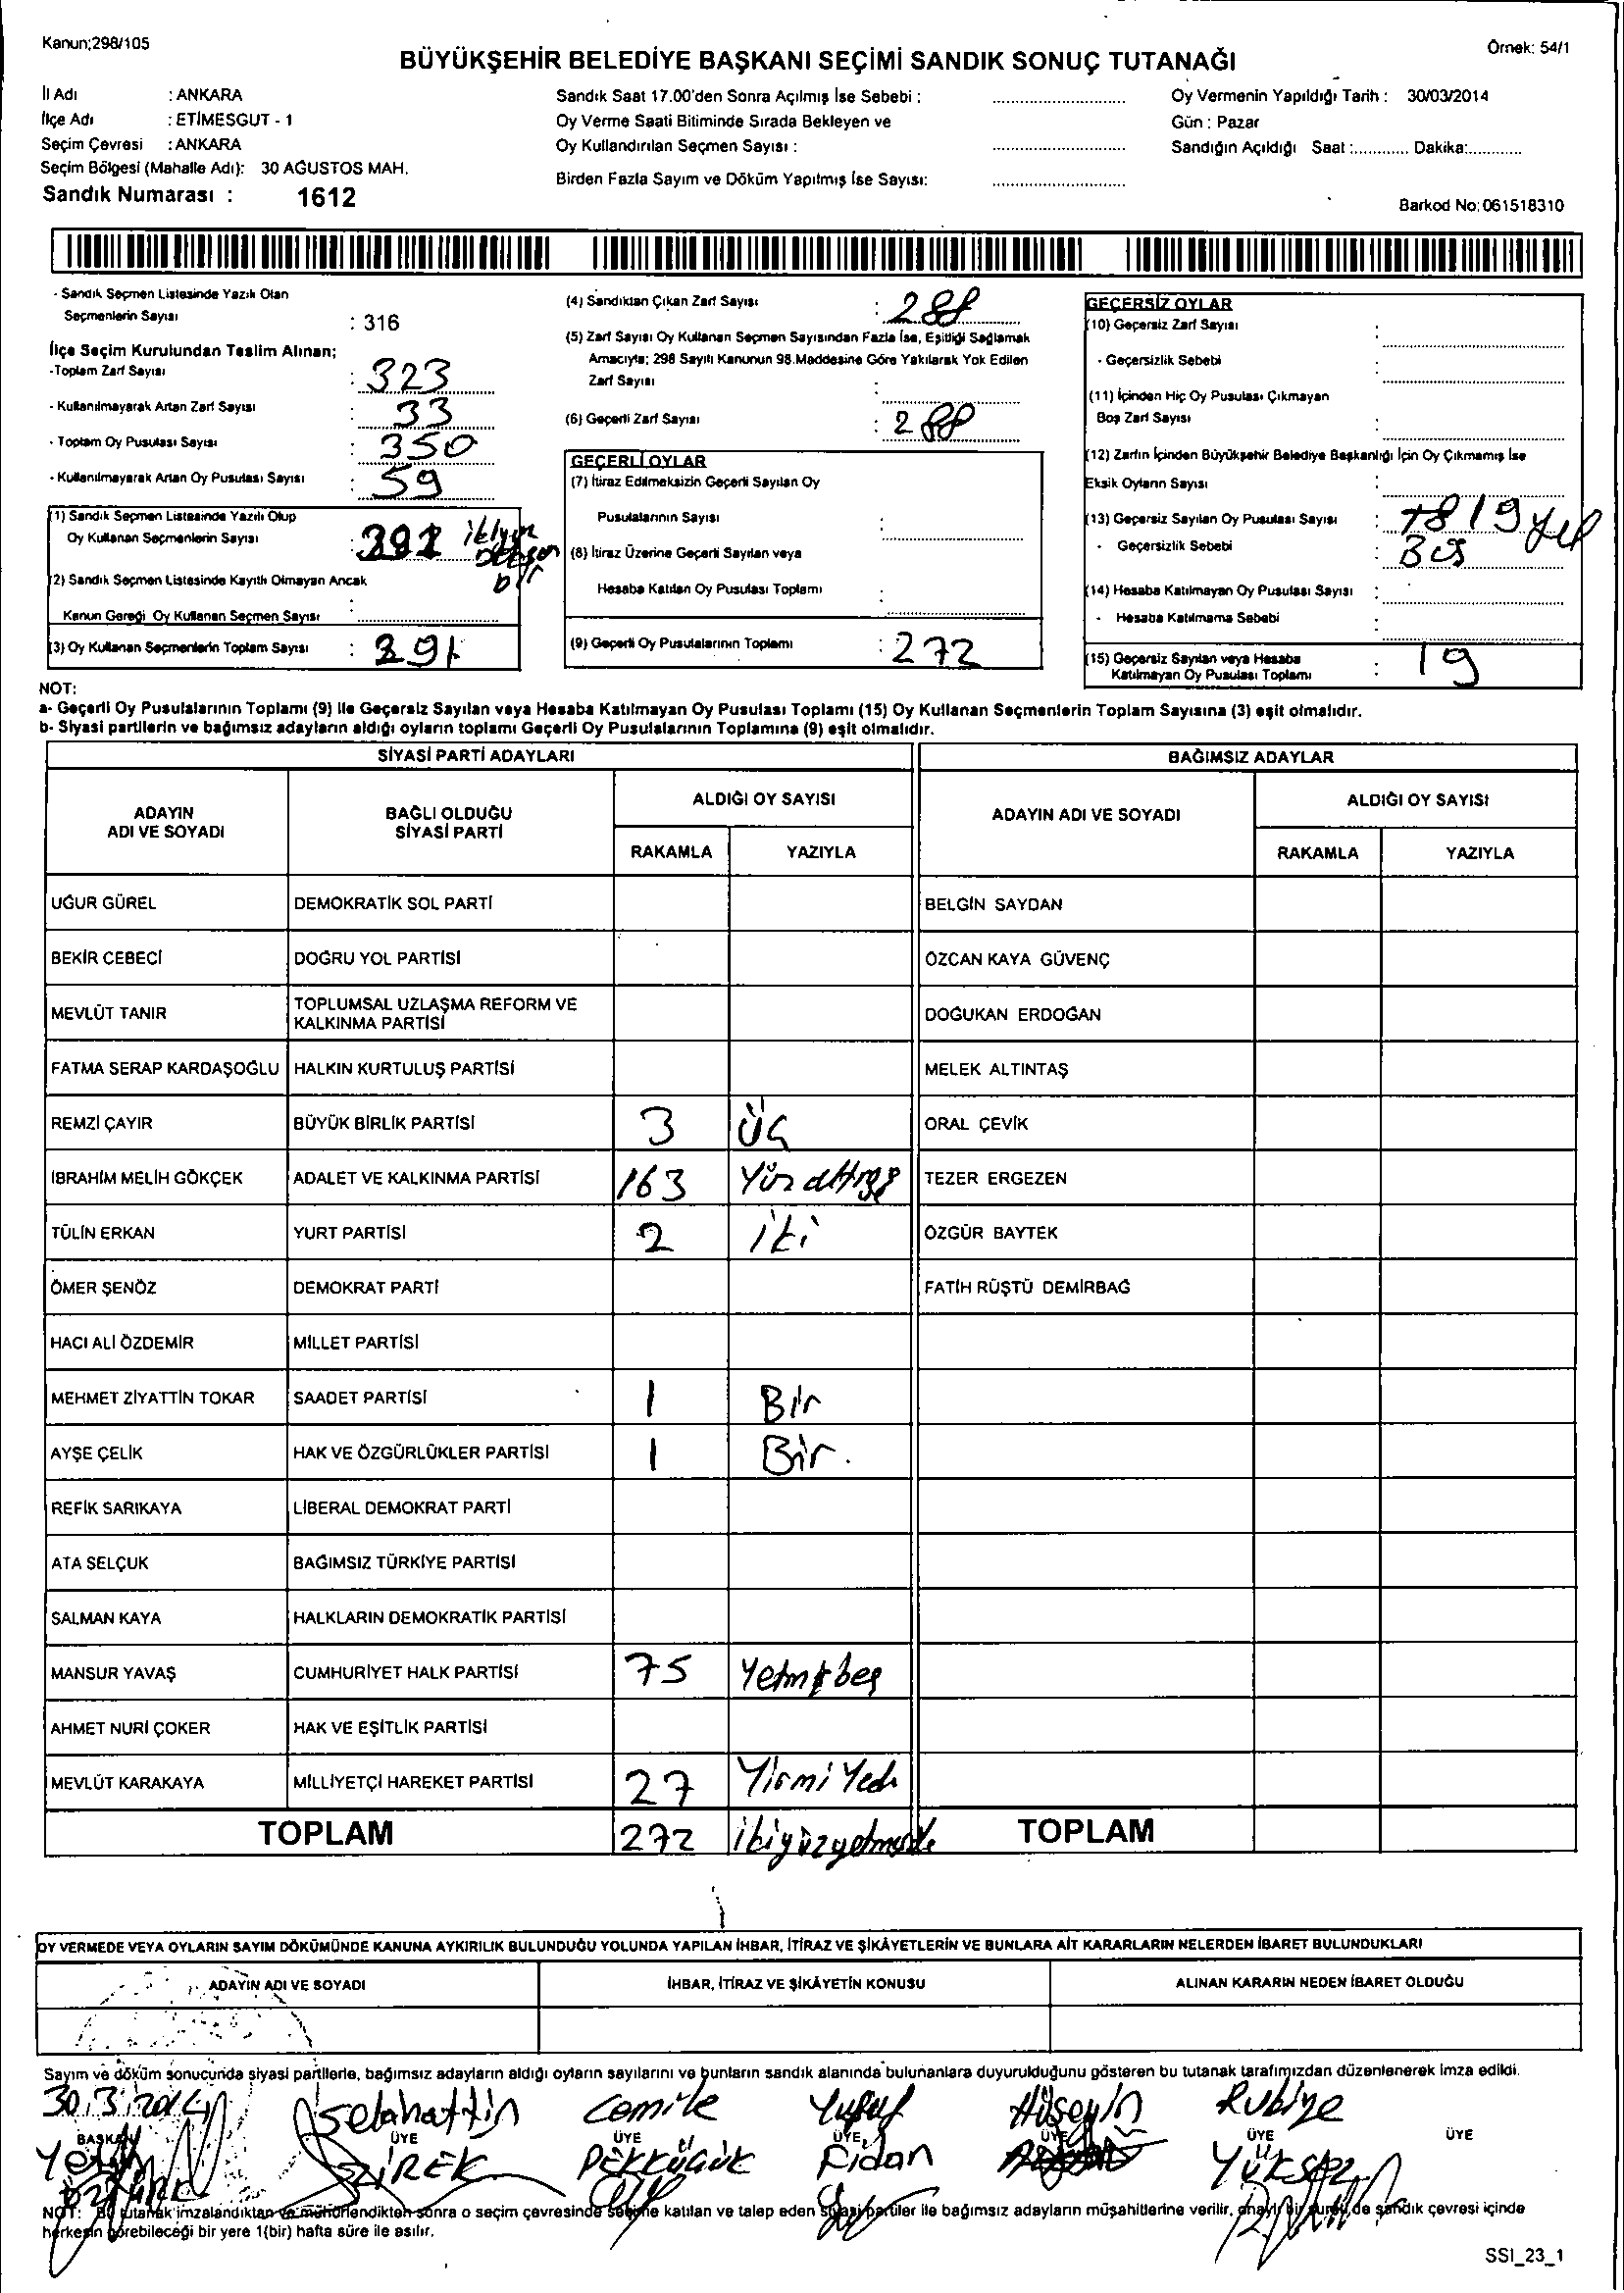 Kanun;298/105
Örnek: 54/1
BÜYÜKŞEHİR BELEDİYE BAŞKANI SEÇİMİ SANDIK SONUÇ TUTANAĞI
İl Adı : ANKARA
İlçe Adı : ETİMESGUT - 1
Seçim Çevresi : ANKARA
Seçim Bölgesi (Mahalle Adı): 30 AĞUSTOS MAH.
Sandık Numarası : 1612
Sandık Saat 17.00'den Sonra Açılmış İse Sebebi :
Oy Verme Saati Bitiminde Sırada Bekleyen ve
Oy Kullandırılan Seçmen Sayısı :
Birden Fazla Sayım ve Döküm Yapılmış İse Sayısı:
Oy Vermenin Yapıldığı Tarih : 30/03/2014
Gün : Pazar
Sandığın Açıldığı Saat :............ Dakika:............
Barkod No: 061518310
- Sandık Seçmen Listesinde Yazılı Olan
Seçmenlerin Sayısı : 316
İlçe Seçim Kurulundan Teslim Alınan;
-Toplam Zarf Sayısı : 323
- Kullanılmayarak Artan Zarf Sayısı : 33
- Toplam Oy Pusulası Sayısı : 350
- Kullanılmayarak Artan Oy Pusulası Sayısı : 59
(1) Sandık Seçmen Listesinde Yazılı Olup
Oy Kullanan Seçmenlerin Sayısı :
bir
(2) Sandık Seçmen Listesinde Kayıtlı Olmayan Ancak
Kanun Gereği Oy Kullanan Seçmen Sayısı :
(3) Oy Kullanan Seçmenlerin Toplam Sayısı : 291
(4) Sandıktan Çıkan Zarf Sayısı : 288
(5) Zarf Sayısı Oy Kullanan Seçmen Sayısından Fazla İse, Eşitliği Sağlamak
Amacıyla; 298 Sayılı Kanunun 98.Maddesine Göre Yakılarak Yok Edilen
Zarf Sayısı :
(6) Geçerli Zarf Sayısı : 288
GEÇERLİ OYLAR
(7) İtiraz Edilmeksizin Geçerli Sayılan Oy
Pusulalarının Sayısı :
(8) İtiraz Üzerine Geçerli Sayılan veya
Hesaba Katılan Oy Pusulası Toplamı :
(9) Geçerli Oy Pusulalarının Toplamı : 272
GEÇERSİZ OYLAR
(10) Geçersiz Zarf Sayısı :
- Geçersizlik Sebebi :
(11) İçinden Hiç Oy Pusulası Çıkmayan
Boş Zarf Sayısı :
(12) Zarfın İçinden Büyükşehir Belediye Başkanlığı İçin Oy Çıkmamış İse
Eksik Oyların Sayısı :
(13) Geçersiz Sayılan Oy Pusulası Sayısı : 19
- Geçersizlik Sebebi :
(14) Hesaba Katılmayan Oy Pusulası Sayısı :
- Hesaba Katılmama Sebebi :
(15) Geçersiz Sayılan veya Hesaba
Katılmayan Oy Pusulası Toplamı : 19
NOT:
a- Geçerli Oy Pusulalarının Toplamı (9) ile Geçersiz Sayılan veya Hesaba Katılmayan Oy Pusulası Toplamı (15) Oy Kullanan Seçmenlerin Toplam Sayısına (3) eşit olmalıdır.
b- Siyasi partilerin ve bağımsız adayların aldığı oyların toplamı Geçerli Oy Pusulalarının Toplamına (9) eşit olmalıdır.
SİYASİ PARTİ ADAYLARI
BAĞIMSIZ ADAYLAR
ADAYIN ADI VE SOYADI
BAĞLI OLDUĞU SİYASİ PARTİ
ALDIĞI OY SAYISI
RAKAMLA YAZIYLA
ADAYIN ADI VE SOYADI
ALDIĞI OY SAYISI
RAKAMLA YAZIYLA
UĞUR GÜREL DEMOKRATİK SOL PARTİ BELGİN SAYDAN
BEKİR CEBECİ DOĞRU YOL PARTİSİ ÖZCAN KAYA GÜVENÇ
MEVLÜT TANIR TOPLUMSAL UZLAŞMA REFORM VE KALKINMA PARTİSİ DOĞUKAN ERDOĞAN
FATMA SERAP KARDAŞOĞLU HALKIN KURTULUŞ PARTİSİ MELEK ALTINTAŞ
REMZİ ÇAYIR BÜYÜK BİRLİK PARTİSİ 3 üç ORAL ÇEVİK
İBRAHİM MELİH GÖKÇEK ADALET VE KALKINMA PARTİSİ 163 TEZER ERGEZEN
TÜLİN ERKAN YURT PARTİSİ 2 iki ÖZGÜR BAYTEK
ÖMER ŞENÖZ DEMOKRAT PARTİ FATİH RÜŞTÜ DEMİRBAĞ
HACI ALİ ÖZDEMİR MİLLET PARTİSİ
MEHMET ZİYATTİN TOKAR SAADET PARTİSİ 1 Bir
AYŞE ÇELİK HAK VE ÖZGÜRLÜKLER PARTİSİ 1 Bir.
REFİK SARIKAYA LİBERAL DEMOKRAT PARTİ
ATA SELÇUK BAĞIMSIZ TÜRKİYE PARTİSİ
SALMAN KAYA HALKLARIN DEMOKRATİK PARTİSİ
MANSUR YAVAŞ CUMHURİYET HALK PARTİSİ 75 Yetmişbeş
AHMET NURİ ÇOKER HAK VE EŞİTLİK PARTİSİ
MEVLÜT KARAKAYA MİLLİYETÇİ HAREKET PARTİSİ 27 Yirmi Yedi
TOPLAM 272 TOPLAM
OY VERMEDE VEYA OYLARIN SAYIM DÖKÜMÜNDE KANUNA AYKIRILIK BULUNDUĞU YOLUNDA YAPILAN İHBAR, İTİRAZ VE ŞİKÂYETLERİN VE BUNLARA AİT KARARLARIN NELERDEN İBARET BULUNDUKLARI
ADAYIN ADI VE SOYADI İHBAR, İTİRAZ VE ŞİKÂYETİN KONUSU ALINAN KARARIN NEDEN İBARET OLDUĞU
Sayım ve döküm sonucunda siyasi partilerle, bağımsız adayların aldığı oyların sayılarını ve bunların sandık alanında bulunanlara duyurulduğunu gösteren bu tutanak tarafımızdan düzenlenerek imza edildi.
30.3.2014 Selahattin Cemile Yusuf Hüseyin Rubiye
BAŞKAN ÜYE ÜYE ÜYE ÜYE ÜYE ÜYE
Fidan
NOT: Bu tutanak imzalandıktan ve mühürlendikten sonra o seçim çevresinde seçime katılan ve talep eden siyasi partiler ile bağımsız adayların müşahitlerine verilir, onaylı bir sureti de sandık çevresi içinde
herkesin görebileceği bir yere 1(bir) hafta süre ile asılır.
SSI_23_1